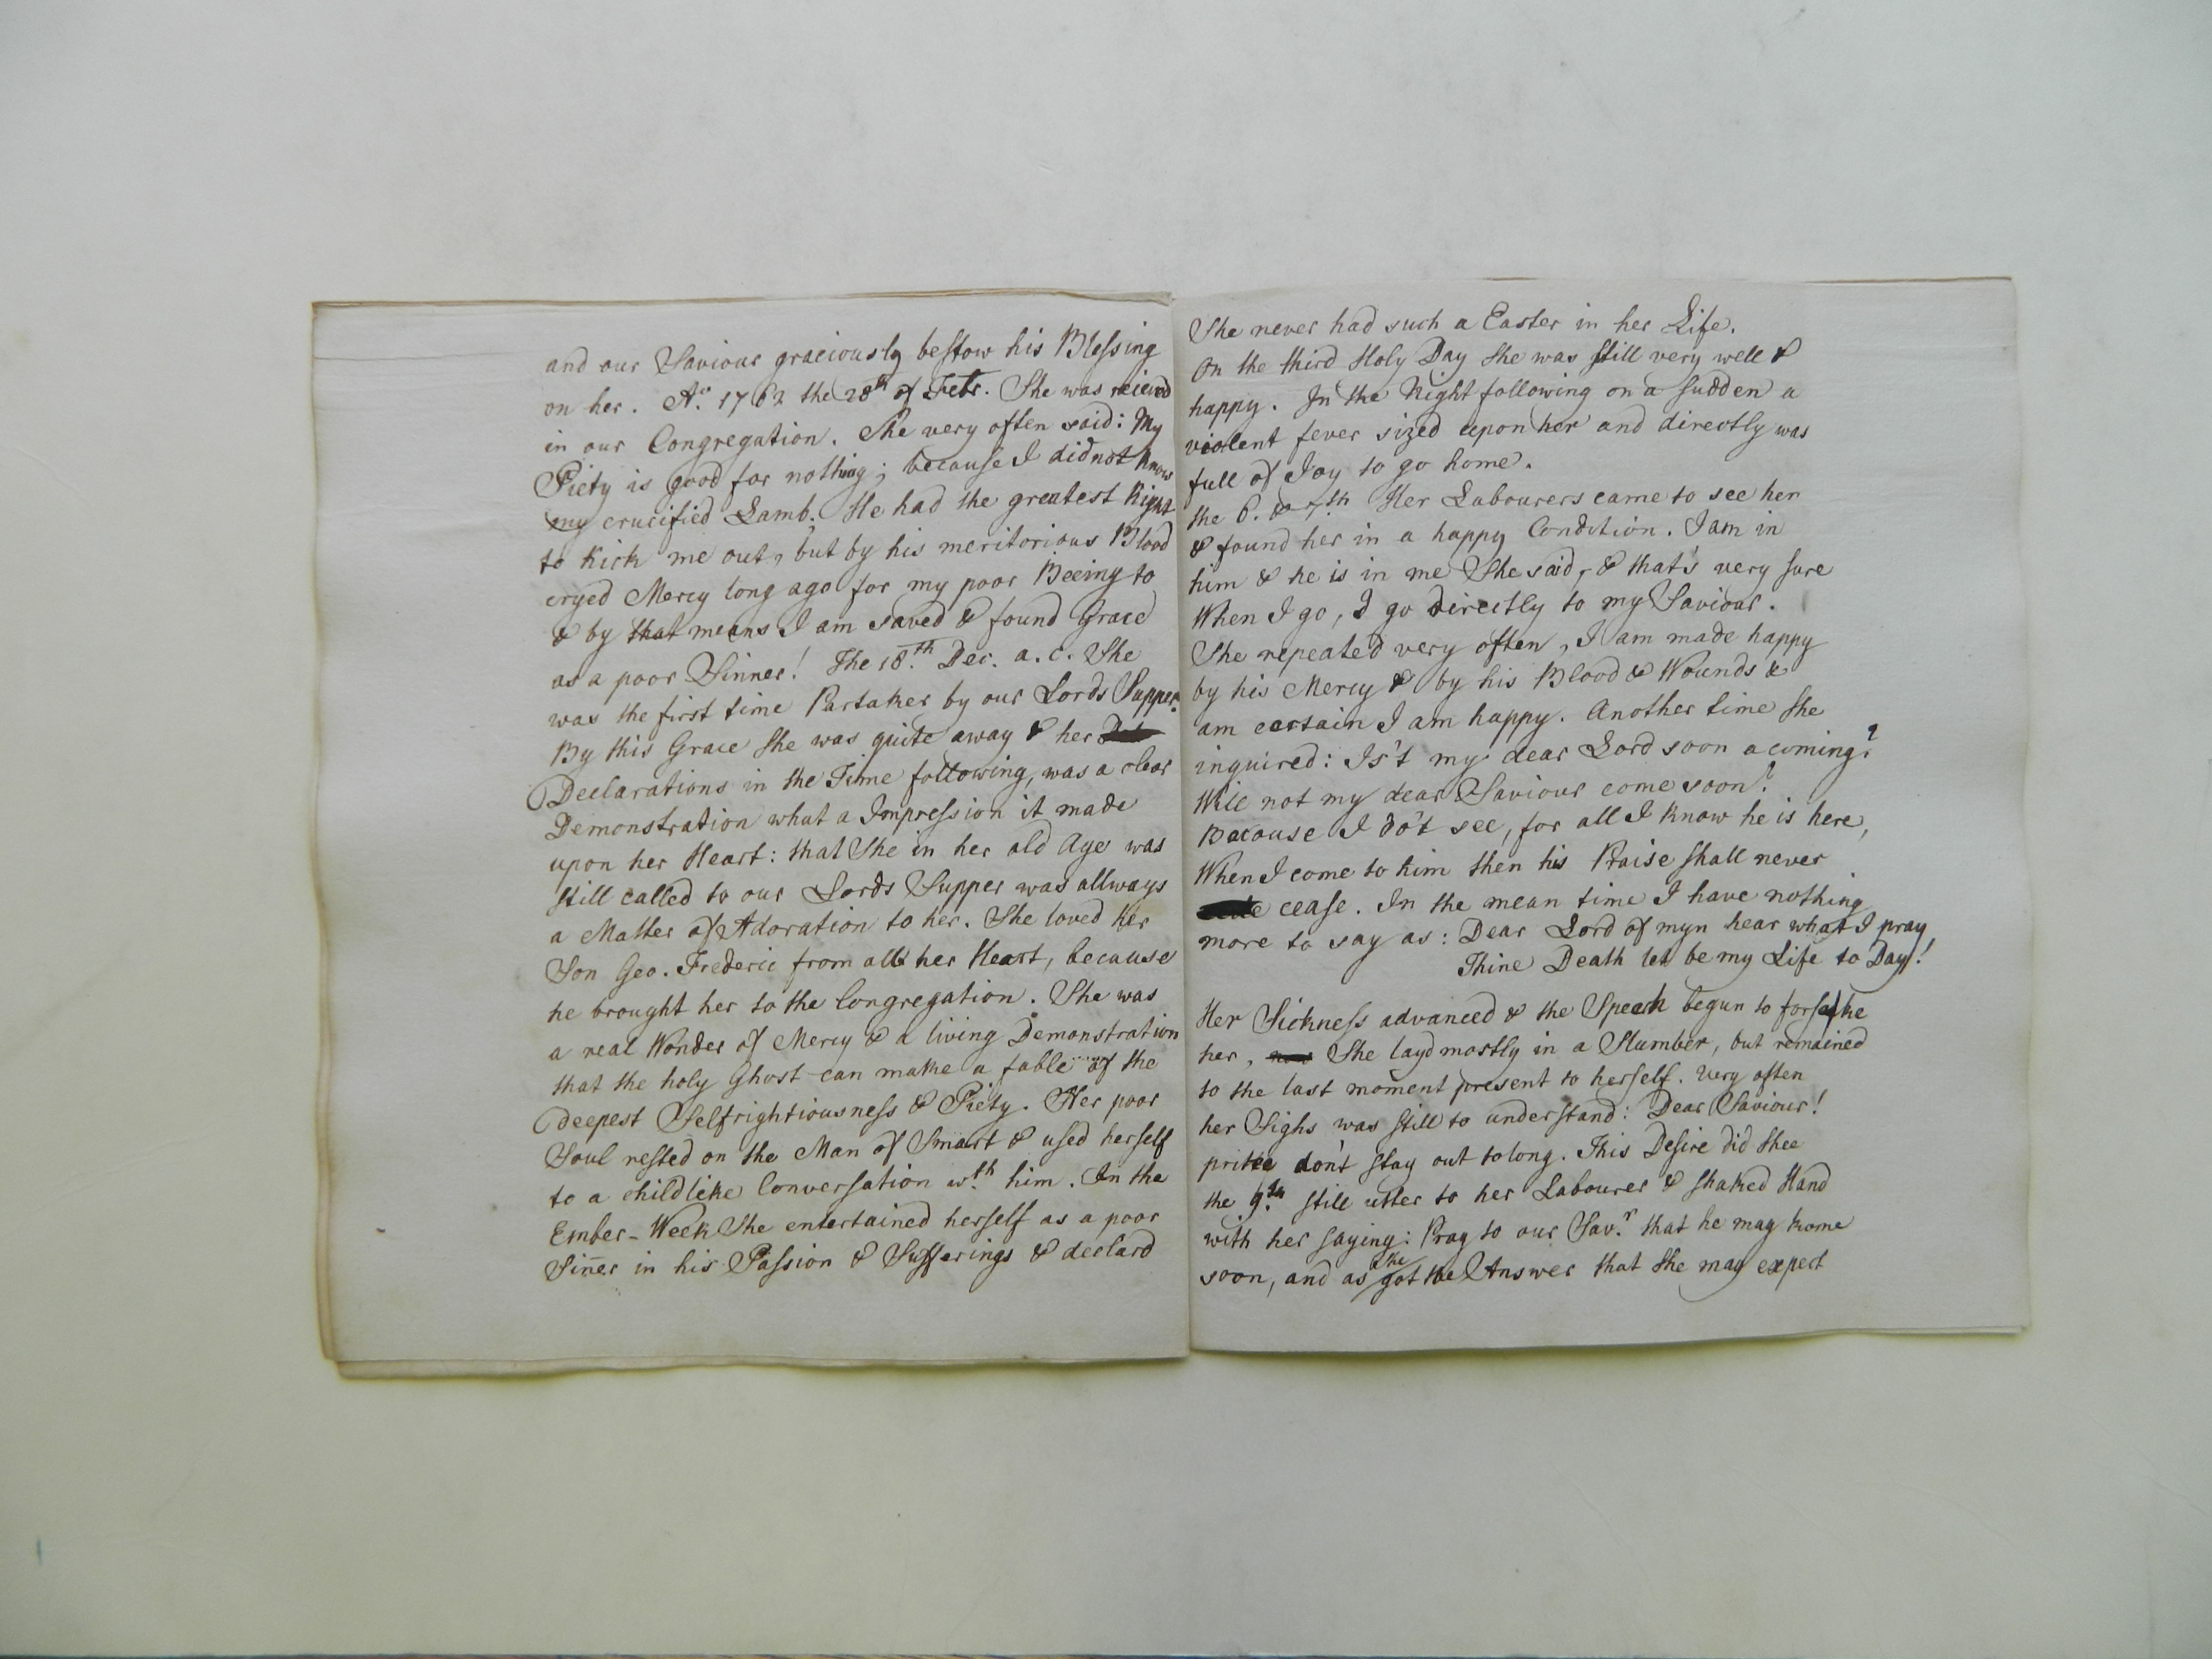 and our Saviour graciously bestow his Blessing
on her. Ao. 1762 the 28th of Febr. She was reicived
in our Congregation. She very often said: My
Piety is good for nothing; because I did not know
my crucified Lamb; He had the greatest Right
to kick me out, but by his meritorious Blood
cryed Mercy long ago for my poor Beeing to
& by that means I am saved & found Grace
as a poor Sinner! The 18.th Dec. a. c. She
was the first time Partaker by our Lords Supper.
By this Grace she was quite away & her
Declarations in the Time following, was a clear
Demonstration what a Impression it made
upon her Heart: that She in her old Age was
still called to our Lords Supper was allways
a Matter of Adoration to her. She loved her
Son Geo. Frederic from all her Heart, because
he brought her to the Congregation. She was
a real Wonder of Mercy & a living Demonstration
that the holy Ghost can make a fable of the
deepest Selfrightiousness & Piety. Her poor
Soul rested on the Man of Smart & used herself
to a childlike Conversation w.th him. In the
Ember-Week She entertained herself as a poor
Siñer in his Passion & Sufferings & declard
She never had such a Easter in her Life.
On the third Holy Day she was still very well &
happy. In the Night following on a sudden a
violent fever sized upon her and directly was
full of Joy to go home.
the 6. & 7.th Her Labourers came to see her
& found her in a happy Condition. I am in
him & he is in me She said, & that's very sure
When I go, I go directly to my Saviour.
She repeated very often, I am made happy
by his Mercy & by his Blood & Wounds &
am certain I am happy. Another time she
inquired: Is't my dear Lord soon a coming?
Will not my dear Saviour come soon?
Because I do't see, for all I know he is here,
When I come to him then his Praise shall never
cease. In the mean time I have nothing
more to say as: Dear Lord of myn hear what I pray
Thine Death let be my Life to Day!
Her Sickness advanced & the Speech begun to forsake
her, She layd mostly in a Slumber, but remained
to the last moment present to herself. Very often
her Sighs was still to understand: Dear Saviour!
prithee don't stay out to long. This Desire did shee
the 9.th still utter to her Labourer & shaked Hand
with her saying: Pray to our Sav.r that he may kome
soon, and as she got the Answer that she may expect